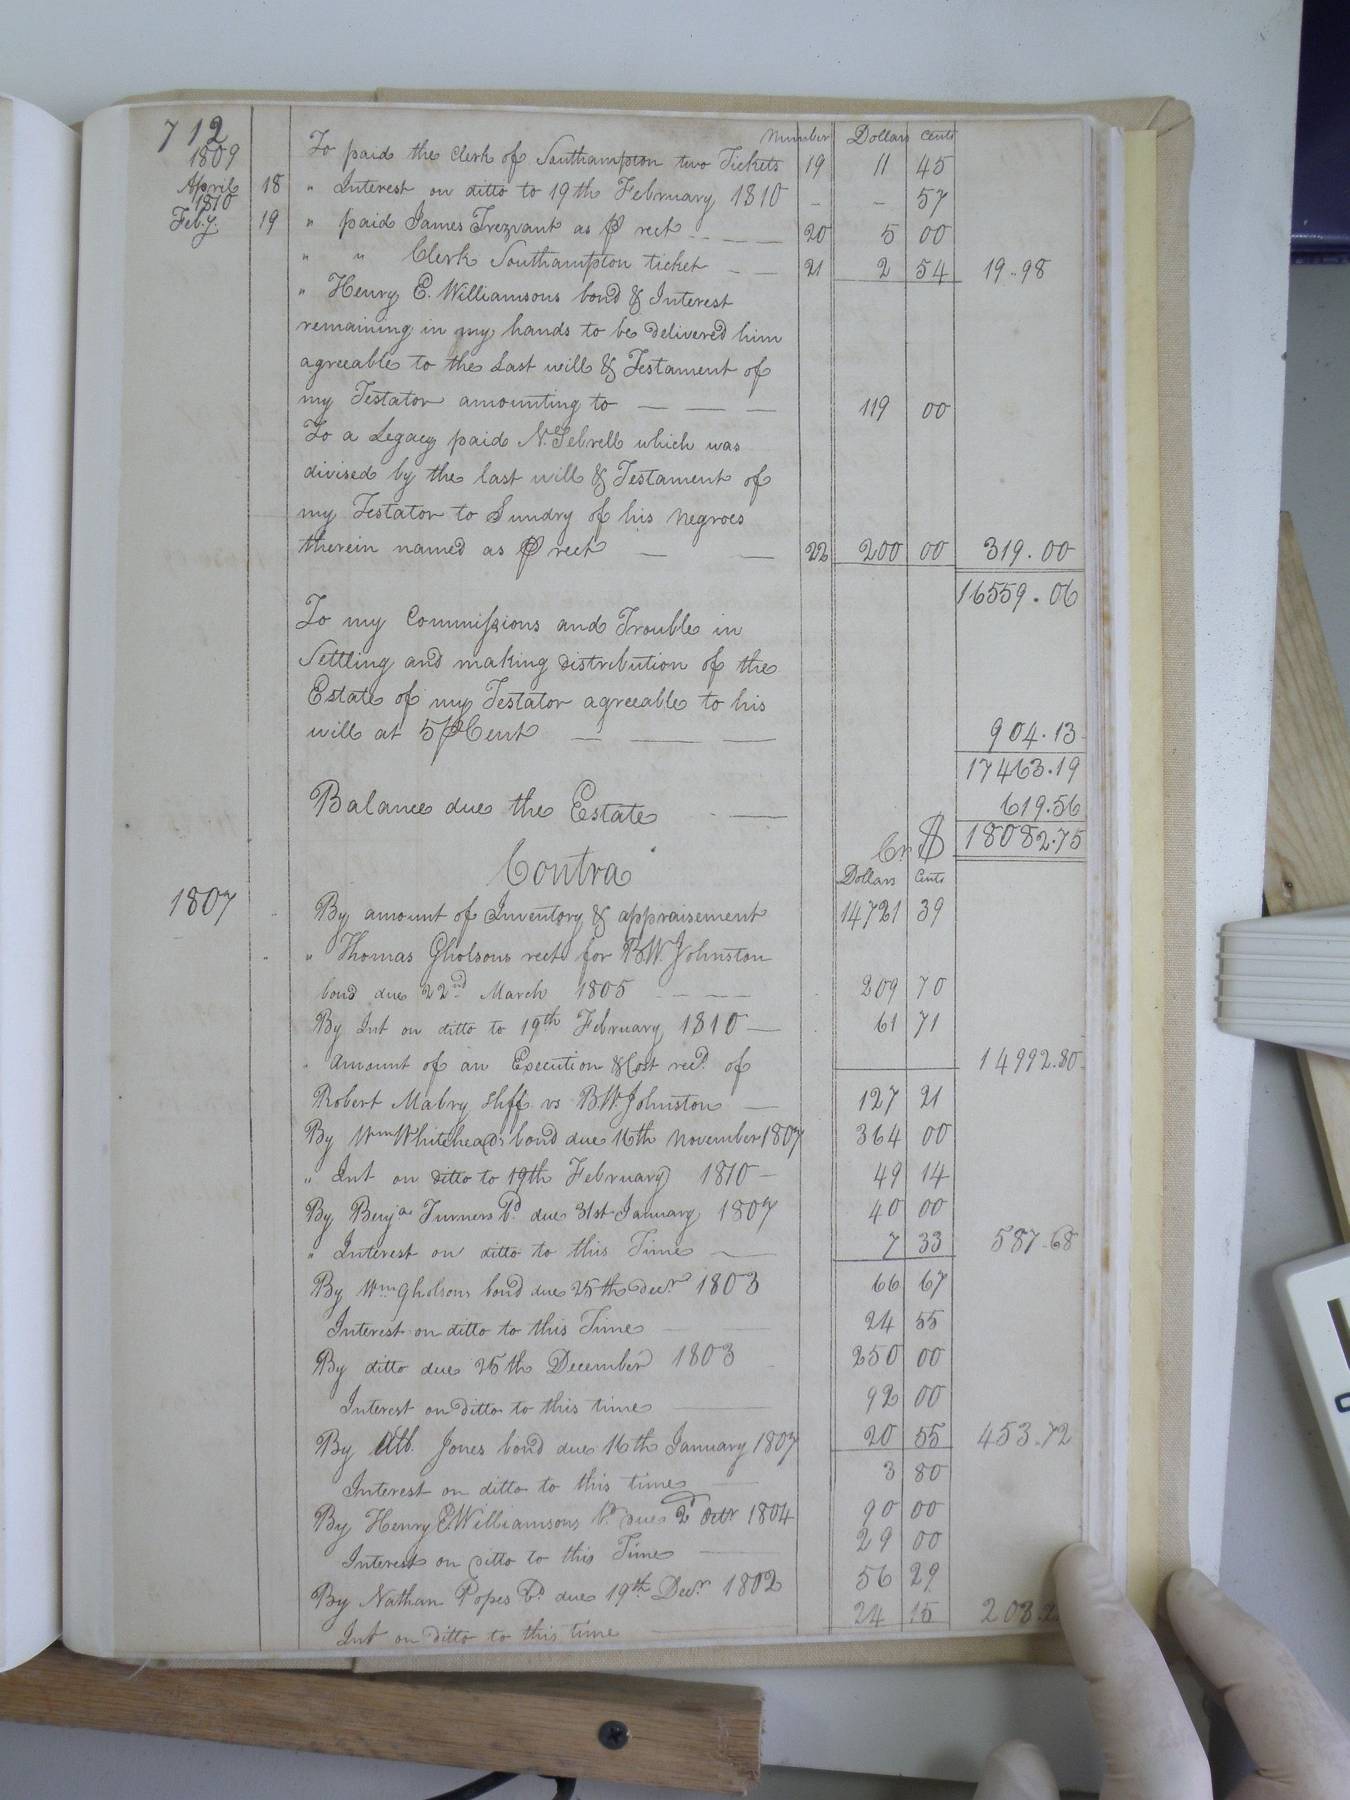 712
Number Dollars Cents
1809 To paid the Clerk of Southampton two Tickets 19 11 45
April 18 " Interest on ditto to 19th February 1810 - - 57
1810
Feby. 19 " paid James Trezvant as ⅌ rect 20 5 00
" " Clerk Southampton ticket 21 2 54 19..98
" Henry E. Williamsons bond & Interest
remaining in my hands to be delivered him
agreeable to the Last will & Testament of
my Testator amounting to 119 00
To a Legacy paid N. Sebrell which was
divised by the last will & Testament of
my Testator to Sundry of his Negroes
therein named as ⅌ rect 22 200 00 319.00
16559.06
To my Commissions and Trouble in
Settling and making distribution of the
Estate of my Testator agreeable to his
will at 5 ⅌ Cent 904.13
17463.19
Balance due the Estate 619.56
Cr $ 18082.75
Contra
Dollars Cents
1807 By amount of Inventory & appraisement 14721 39
" Thomas Gholsons rect for B.W. Johnston
bond due 22nd March 1805 209 70
By Int on ditto to 19th February 1810 61 71
" amount of an Execution & Cost recd. of 14992.80
Robert Mabry shff vs B.W. Johnston 127 21
By Wm Whiteheads bond due 16th November 1807 364 00
" Int on ditto to 19th February 1810 49 14
By Benja Turners bd due 31st January 1807 40 00
" Interest on ditto to this Time 7 33 587.68
By Wm Gholsons bond due 25th Decr 1803 66 67
Interest on ditto to this Time 24 55
By ditto due 25th December 1803 250 00
Interest on ditto to this time 92 00
By Alb. Jones bond due 16th January 1807 20 55 453.72
Interest on ditto to this time 3 80
By Henry E. Williamsons bd due 2d Octr 1804 90 00
Interest on ditto to this Time 29 00
By Nathan Popes bd due 19th Decr 1802 56 29
Int on ditto to this time 24 15